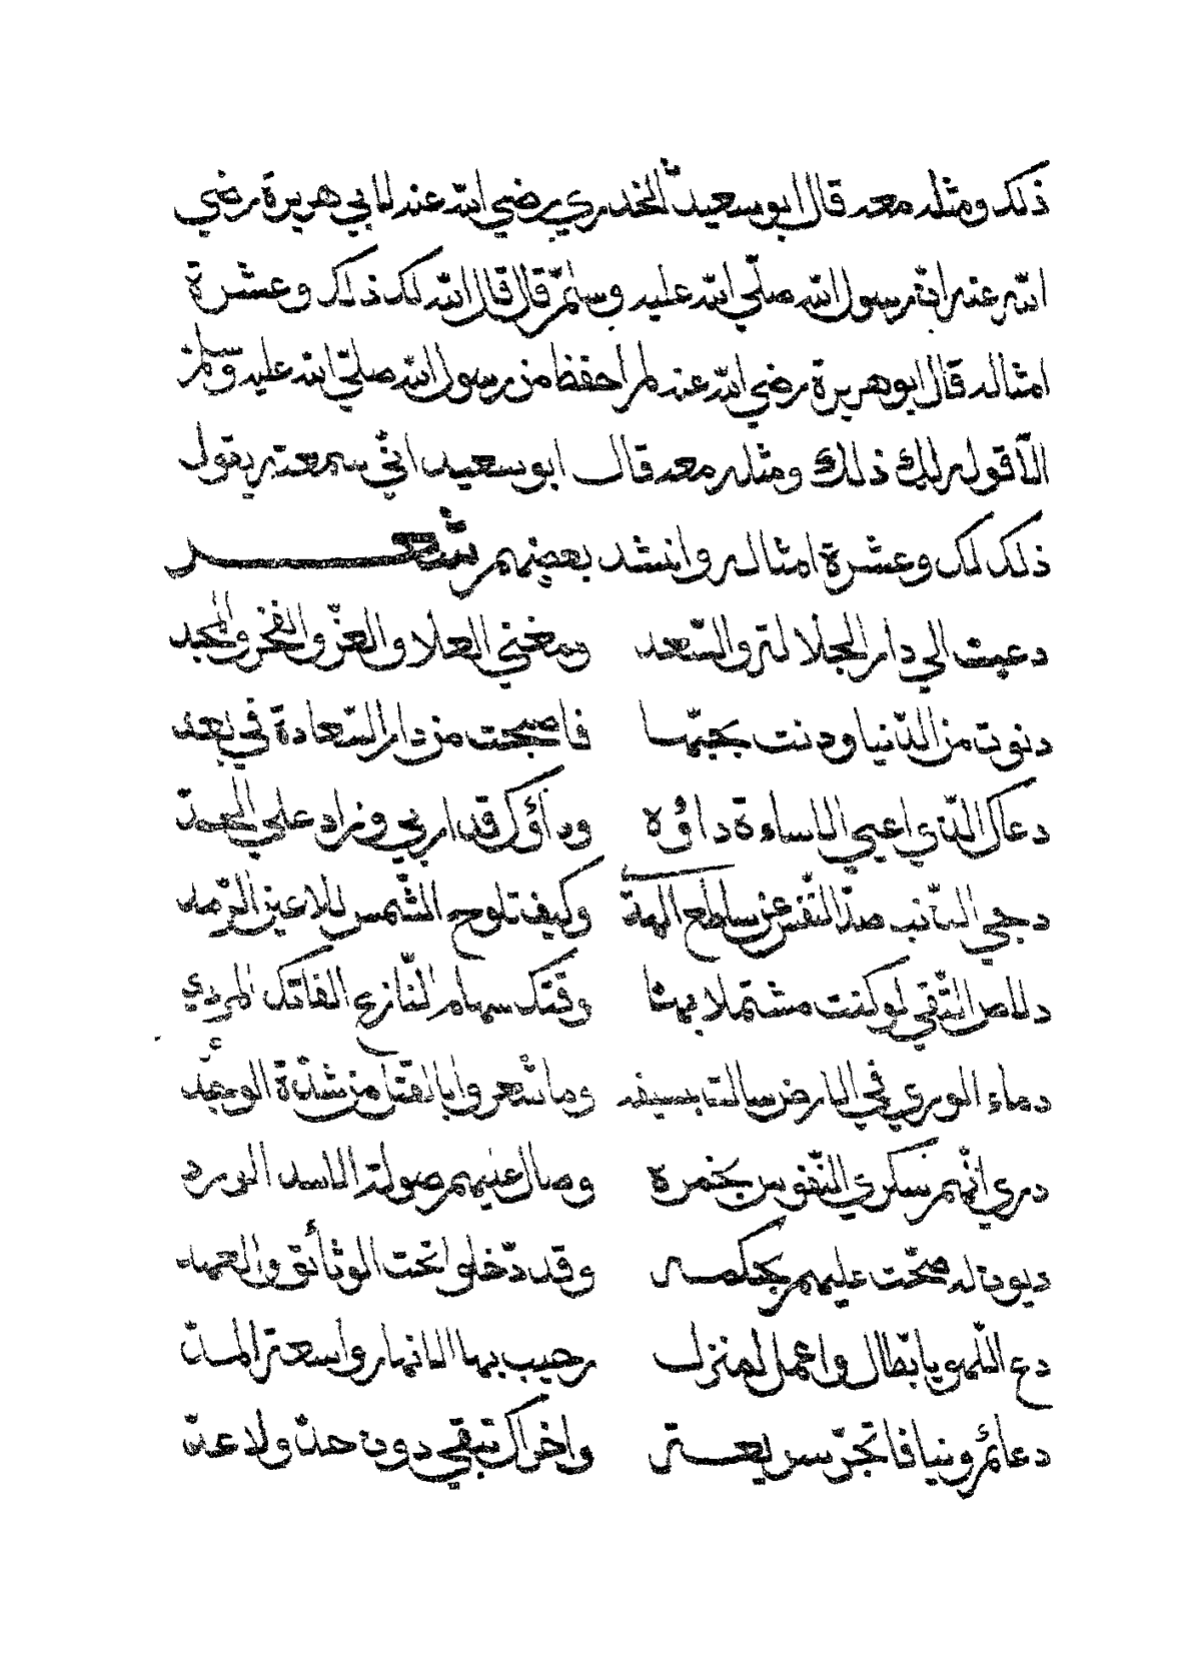 ذلك ومثله معه قال ابو سعيد الخدري رضي الله عنه لابي هريرة رضي
الله عنه ان رسول الله صلّي الله عليه وسلّم قال قال الله لك ذلك وعشرة
امثاله قال ابو هريرة رضي الله عنه لم احفظ من رسول الله صلّي الله عليه وسلم
الّا قوله لك ذلك ومثله معه قال ابو سعيد انّي سمعته يقول
ذلك لك وعشرة امثاله وانشد بعضهم شعر
دعيت الي دار الجلالة والسّعد ومغني العلا والعزّ والفخر والمجد
دنوت من الدّنيا ودنت بحبّها فاصبحت من دار السّعادة في بعد
دعاك الذي اعيي الاساءة داؤه وداؤك قد اربي وزاد علي الحدّ
دجي الذّنب صدّ النّفس عن ساطع الهدي وكيف تلوح الشّمس للاعين الرّمد
دلاص التّقي لو كنت مشتملا بها وقتك سهام النّازع الفاتك المردي
دماء الوري في الارض سالت بسيفه وما شعروا بالقتل من شدّة الوجد
دري انّهم سكري النّفوس بخمرة وصال عليهم صولة الاسد الورد
ديون له صحّت عليهم بحكمه وقد دخلوا تحت الوثائق والعهد
دع اللّهو يا بطّال واعمل لمنزل رحيب بها الانهار واسعة المدّ
دعائم دنيا فاتجرّ سريعة واخراك تبقي دون حدّ ولا عدّ